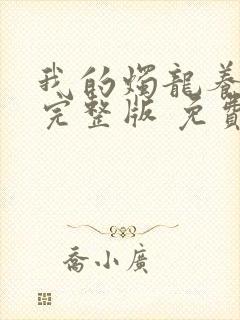 我的燭龍養
完整版 免費
喬小廣